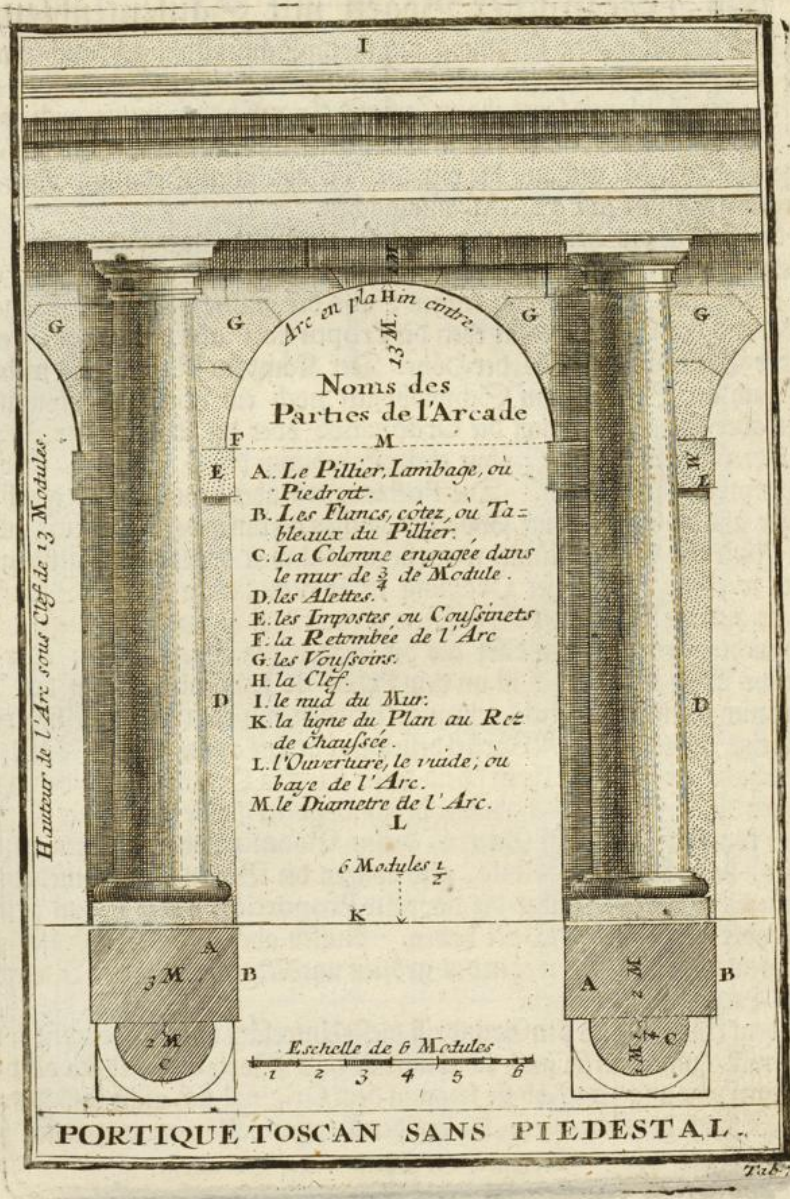 I
1 M
G
G
G
G
Arc en pla H in cintre.
13 M.
Noms des
Parties de l'Arcade
F
M
E
L
A. Le Pillier, Iambage, où
Piedroit.
B. Les Flancs, côtez, où Ta=
bleaux du Pillier.
C. La Colonne engagée dans
le mur de 3/4 de Module.
D. les Alettes.
E. les Impostes ou Coussinets
F. la Retombée de l'Arc
G. les Voussoirs.
H. la Clef.
I. le nud du Mur.
K. la ligne du Plan au Rez
de chaussée.
L. l'Ouverture, le vuide, où
baye de l'Arc.
M. le Diametre de l'Arc.
L
D
D
Hauteur de l'Arc sous Clef de 13 Modules.
6 Modules 1/2
K
A
3 M.
B
A
2 M
B
2 M
C
1 M 1/4
C
Eschelle de 6 Modules
1 2 3 4 5 6
PORTIQUE TOSCAN SANS PIEDESTAL.
Tab